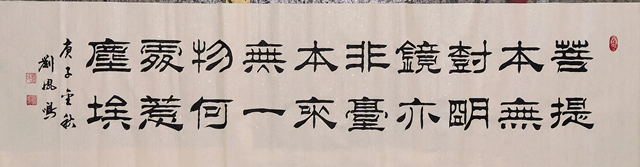 菩提
本無
樹明
鏡亦
非臺
本來
無一
物何
處惹
塵埃
庚子金秋
劉鳳